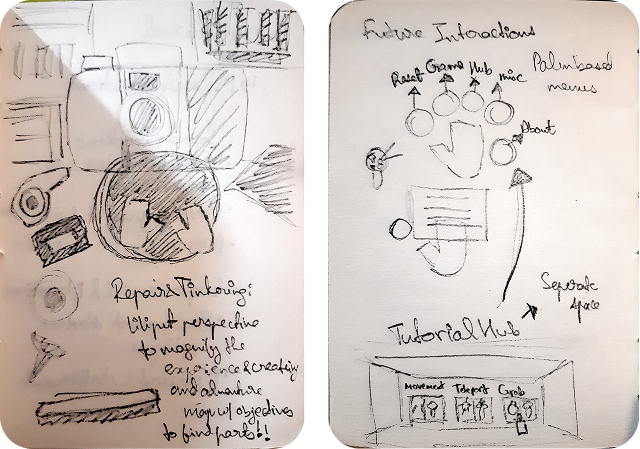 Repair&Tinkering:
liliput perspective
to magnify the
experience & creativity
and adventure
map w/ objectives
to find parts!!
Future Interactions
Palm based
menus
Reset Game Hub misc
About
Separate
space
Tutorial Hub
Movement Teleport Grab